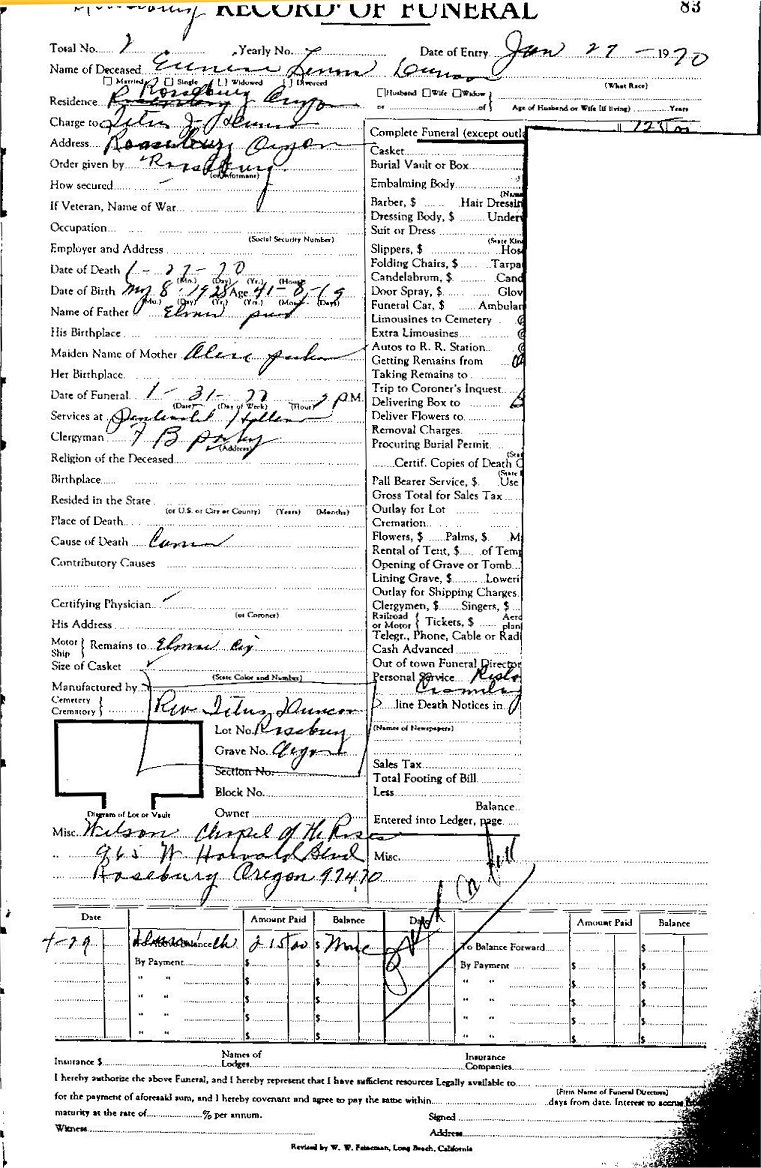 Roseburg RECORD OF FUNERAL 83
Total No. 2 Yearly No. 2 Date of Entry Jan 27 - 1970
Name of Deceased Lenon Duncan
Married Single Widowed Divorced (What Race)
Residence Roseburg Oregon
Husband Wife Widow
or of Age of Husband or Wife (if living) Years
Charge to Titus J Duncan
Address Roseburg Oregon
Order given by Roseburg
(or Informant)
How secured
If Veteran, Name of War
Occupation
(Social Security Number)
Employer and Address
Date of Death 1 - 27 - 70
(Mo.) (Day) (Yr.) (Hour)
Date of Birth May 8 1928 Age 41-8-19
(Mo.) (Day) (Yr.) (Yrs.) (Mos.) (Days)
Name of Father Elmer
His Birthplace
Maiden Name of Mother
Her Birthplace
Date of Funeral 1 - 31 - 70 2 P.M.
(Date) (Day of Week) (Hour)
Services at
Clergyman F B
(Address)
Religion of the Deceased
Birthplace
Resided in the State
(or U.S. or City or County) (Years) (Months)
Place of Death
Cause of Death Cancer
Contributory Causes
Certifying Physician
(or Coroner)
His Address
Motor Ship Remains to
Size of Casket
(State Color and Number)
Manufactured by
Cemetery Crematory Rev Titus Duncan
Lot No. Roseburg
Grave No. Oregon
Section No.
Block No.
Diagram of Lot or Vault Owner
Misc. Wilson Chapel of the Roses
965 W Harvard Blvd
Roseburg Oregon 97470
Complete Funeral (except outl
Casket
Burial Vault or Box
Embalming Body
Barber, $ Hair Dressin
Dressing Body, $ Under
Suit or Dress
Slippers, $ Hos
Folding Chairs, $ Tarpa
Candelabrum, $ Cand
Door Spray, $ Glov
Funeral Car, $ Ambulan
Limousines to Cemetery
Extra Limousines
Autos to R. R. Station
Getting Remains from
Taking Remains to
Trip to Coroner's Inquest
Delivering Box to
Deliver Flowers to
Removal Charges
Procuring Burial Permit
Certif. Copies of Death C
Pall Bearer Service, $ Use
Gross Total for Sales Tax
Outlay for Lot
Cremation
Flowers, $ Palms, $ M
Rental of Tent, $ of Temp
Opening of Grave or Tomb
Lining Grave, $ Loweri
Outlay for Shipping Charges
Clergymen, $ Singers, $
Railroad or Motor Tickets, $ Aero plan
Telegr., Phone, Cable or Radi
Cash Advanced
Out of town Funeral Director
Personal Service
line Death Notices in
(Names of Newspapers)
Sales Tax
Total Footing of Bill
Less
Balance
Entered into Ledger, page
Misc.
Paid in full
Date Amount Paid Balance Date Amount Paid Balance
4-29 ch 215.00 $ To Balance Forward $
By Payment $ $ By Payment $ $
" " $ $ " " $ $
" " $ $ " " $ $
" " $ $ " " $ $
Insurance $ Names of Lodges Insurance Companies
I hereby authorize the above Funeral, and I hereby represent that I have sufficient resources Legally available to
(Firm Name of Funeral Directors)
for the payment of aforesaid sum, and I hereby covenant and agree to pay the same within days from date. Interest to accrue
maturity at the rate of % per annum. Signed
Witness Address
Revised by W. W. Feterman, Long Beach, California